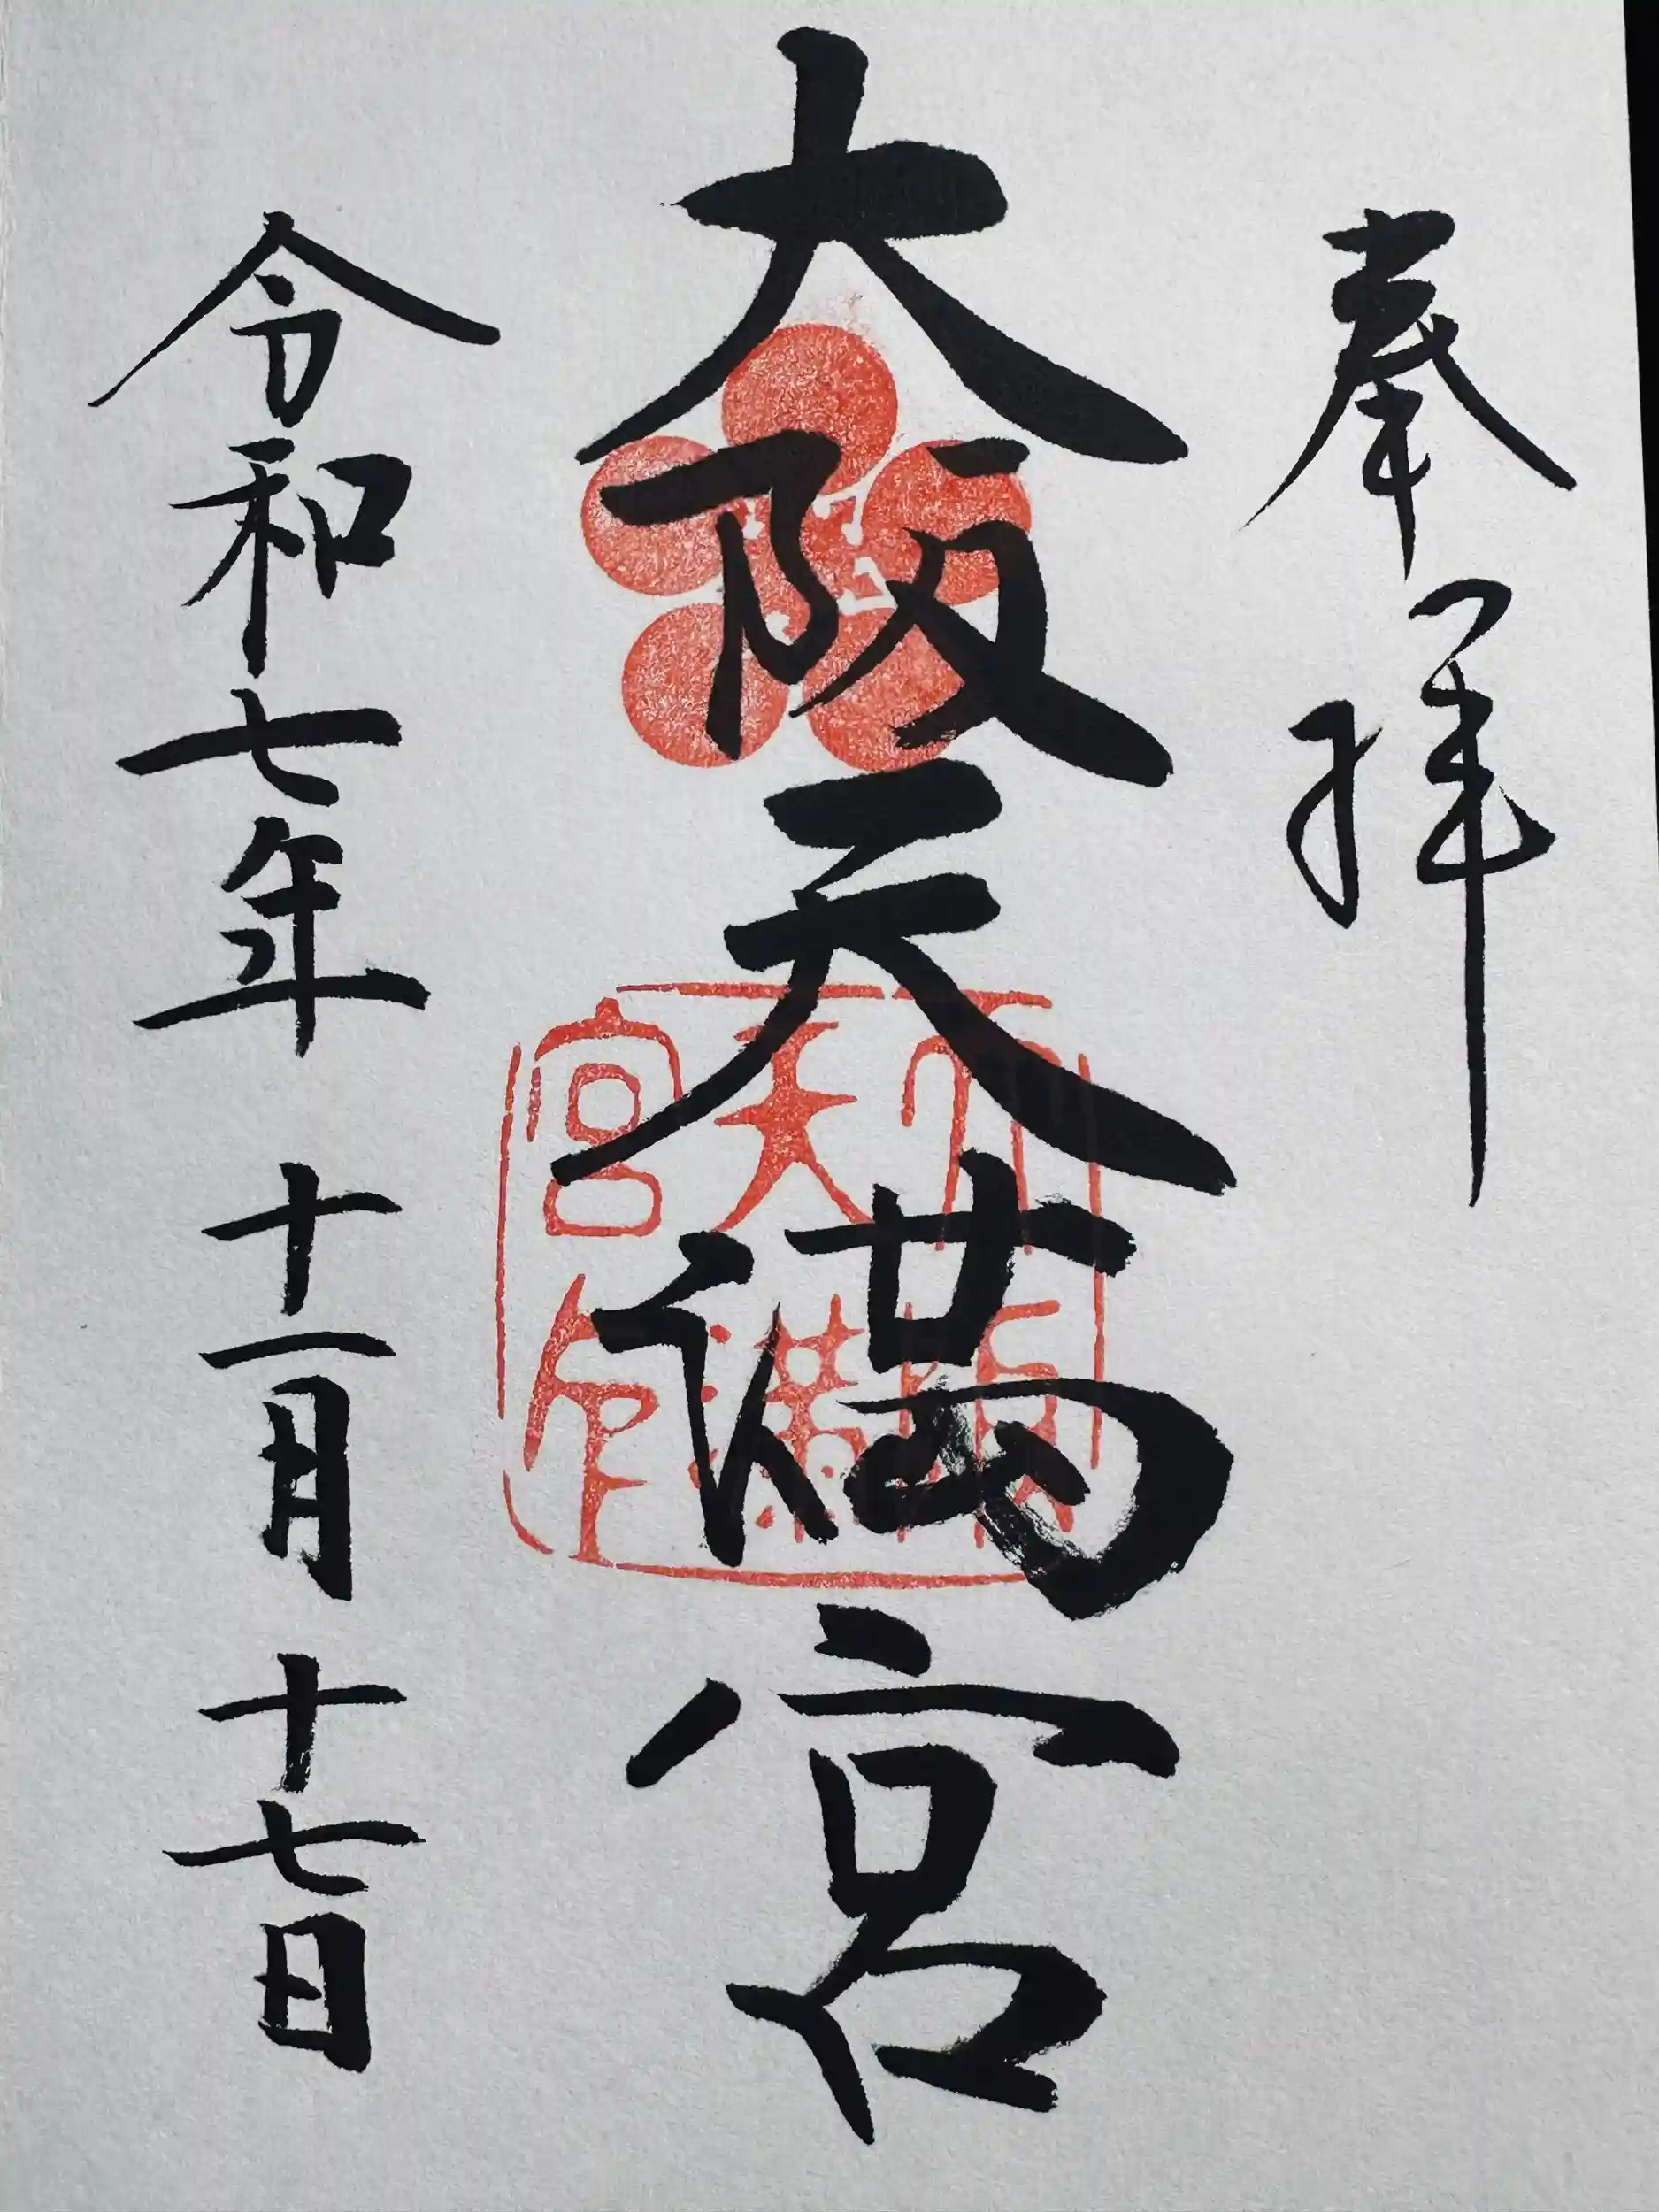 奉拝
大阪天満宮
令和七年十一月十七日
大阪
天満
宮印